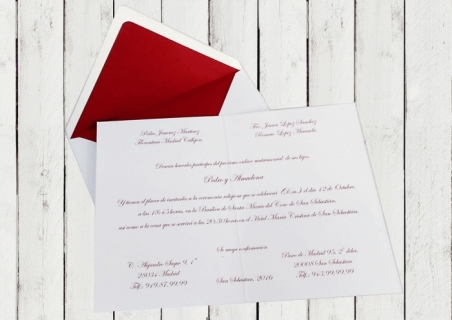 Pedro Jimenez Martinez
Florentina Madrid Callejón
Fco. Javier Lopez Sanchez
Rosario Lopez Miranda
Desean hacerles partícipes del próximo enlace matrimonial de sus hijos
Pedro y Almudena
Y tienen el placer de invitarles a la ceremonia religiosa que se celebrará (D.m.) el día 12 de Octubre,
a las 18:15 horas, en la Basílica de Santa María del Coro de San Sebastián,
así como a la cena que se servirá a las 20:30 horas en el Hotel María Cristina de San Sebastián.
Se ruega confirmación
C. Alejandro Saque 9, 1º
28034 Madrid
Tlf.: 919.87.99.99
San Sebastián, 2016
Paseo de Madrid 95, 2º dcha.
20008 San Sebastián
Tlf.: 943.99.99.99